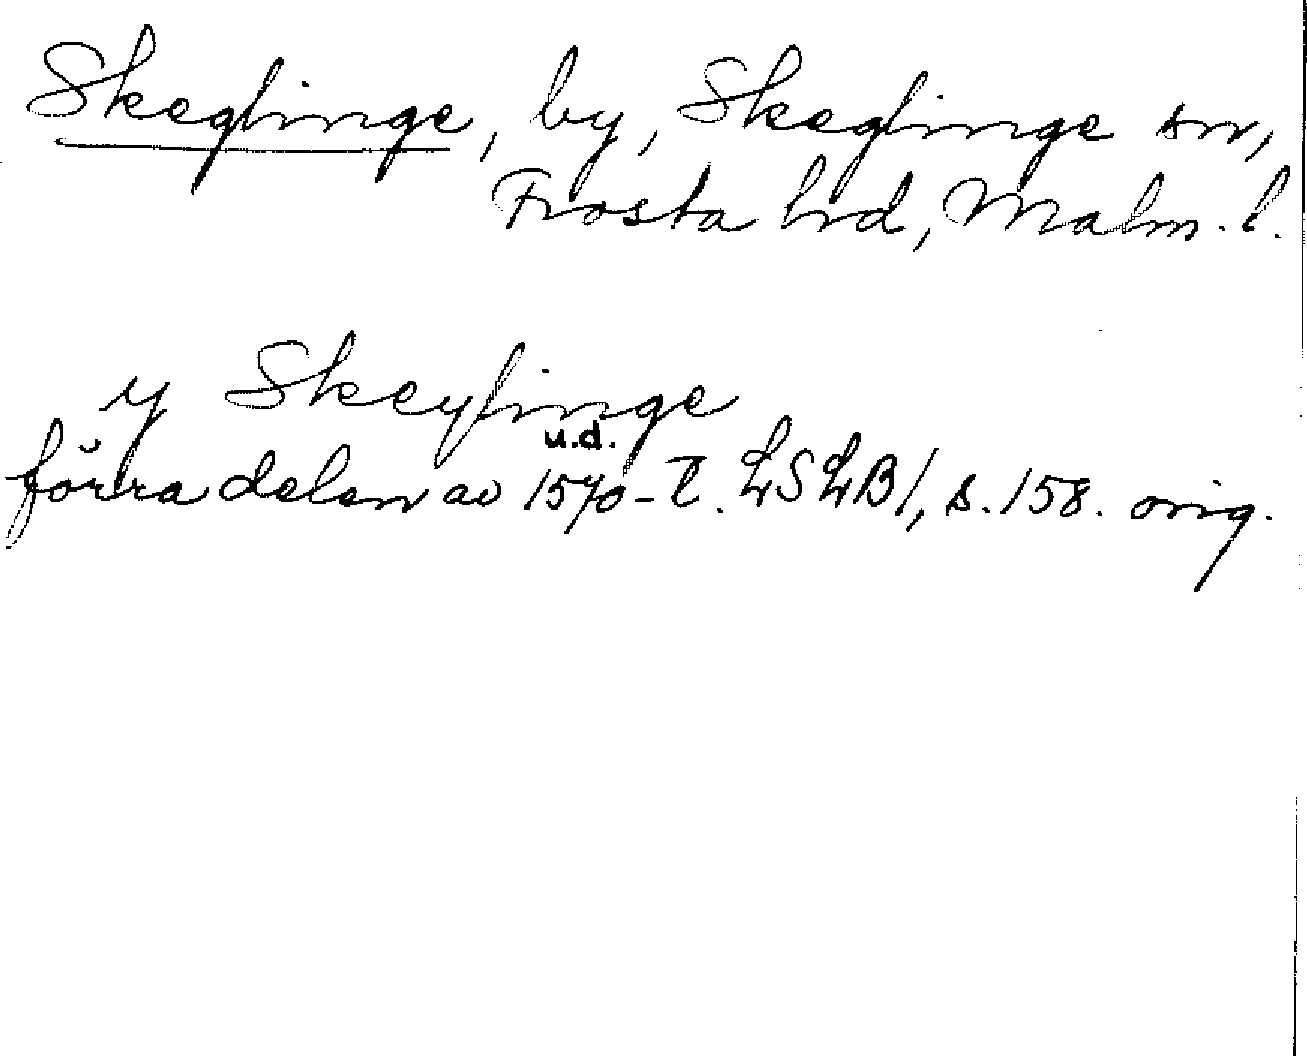 Skeglinge, by, Skeglinge sn,
Frosta hrd, Malm. l.
y Skeylinge
u.d.
förra delen av 1570-t. LSLB1, s. 158. orig.